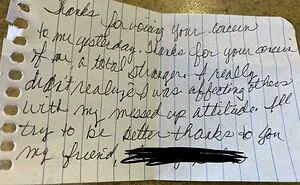 Thanks for voicing your concern
to me yesterday. Thanks for your concern
of me a total stranger. I really
didn't realize I was affecting others
with my missed up attitude. I'll
try to be better thanks to you
my friend,